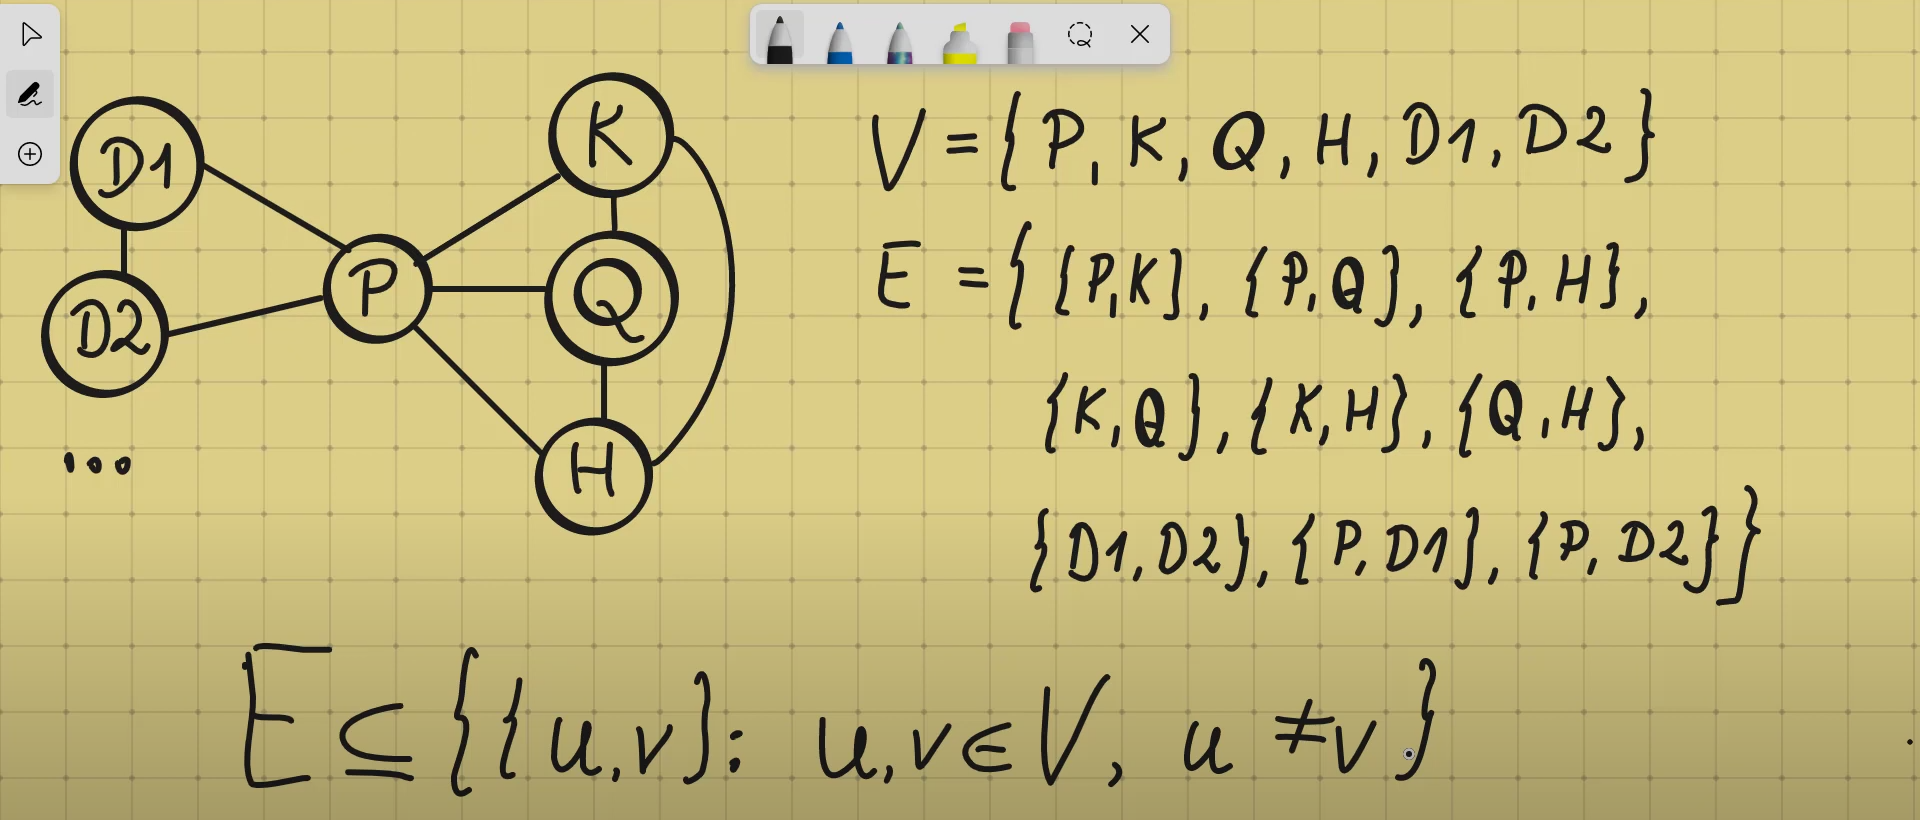 D1
K
P
Q
D2
H
...
V = { P, K, Q, H, D1, D2 }
E = { {P,K}, {P,Q}, {P,H},
{K,Q}, {K,H}, {Q,H},
{D1,D2}, {P,D1}, {P,D2} }
E ⊆ { {u,v} : u,v ∈ V, u ≠ v }